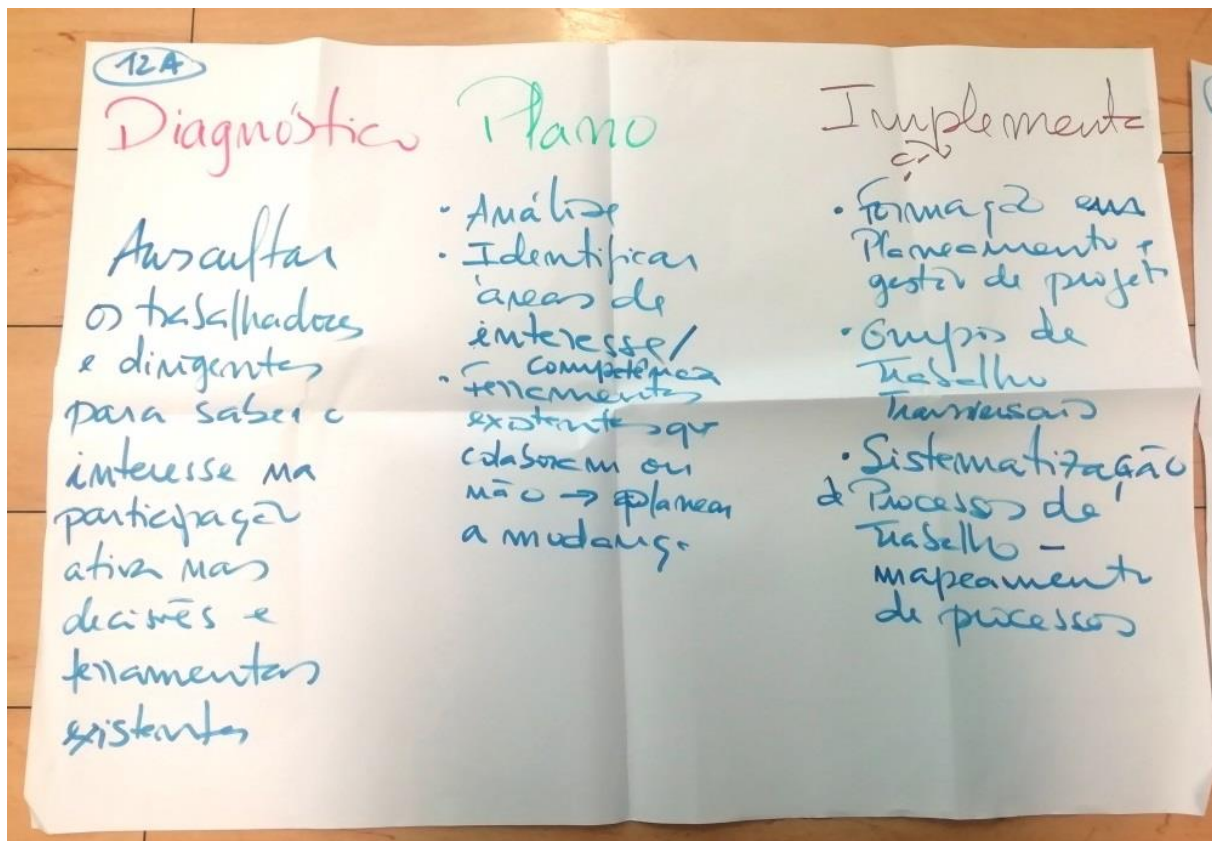 12A
Diagnóstico
Auscultar
os trabalhadores
e dirigentes
para saber o
interesse na
participação
ativa nas
decisões e
ferramentas
existentes
Plano
• Análise
• Identificar
áreas de
interesse/
competência
• Ferramentas
existentes que
colaborem ou
não → planear
a mudança
Implementa
ção
• Formação em
Planeamento e
gestão de projeto
• Grupos de
Trabalho
Transversais
• Sistematização
de Processos de
Trabalho –
mapeamento
de processos